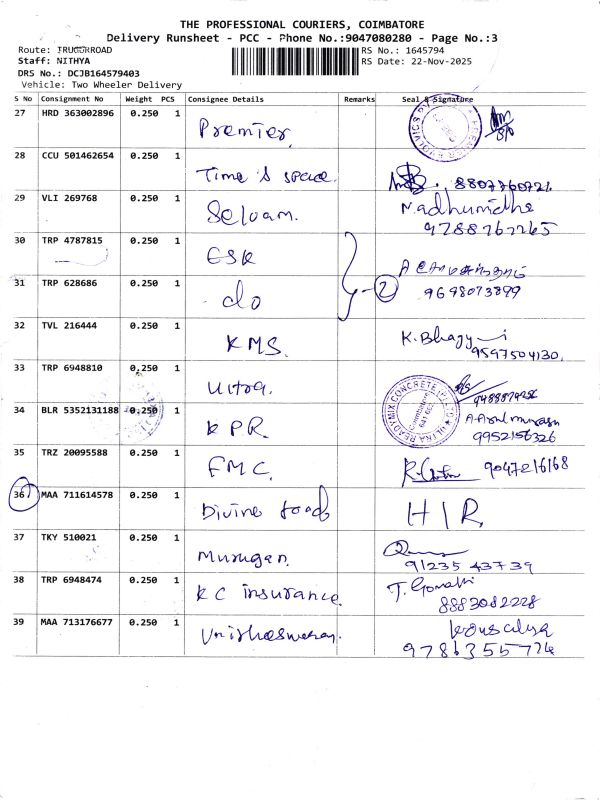 THE PROFESSIONAL COURIERS, COIMBATORE
Delivery Runsheet - PCC - Phone No.:9047080280 - Page No.:3
Route: TRUCORROAD
RS No.: 1645794
Staff: NITHYA
RS Date: 22-Nov-2025
DRS No.: DCJB164579403
Vehicle: Two Wheeler Delivery
S No Consignment No Weight PCS Consignee Details Remarks Seal & Signature
27 HRD 363002896 0.250 1 Premier
28 CCU 501462654 0.250 1 Time & space. 8807760721
29 VLI 269768 0.250 1 Selvam. Madhumidha
9788767265
30 TRP 4787815 0.250 1 ESK
31 TRP 628686 0.250 1 do 2 9698073899
32 TVL 216444 0.250 1 KMS. K. Bhagy
9597504130.
33 TRP 6948810 0.250 1 Ultra. ULTRA READYMIX CONCRETE (P) LTD
34 BLR 5352131188 0.250 1 KPR.
9952156326
35 TRZ 20095588 0.250 1 FMC. 9047216168
36 MAA 711614578 0.250 1 Divine food H I R
37 TKY 510021 0.250 1 Murugan.
91235 43739
38 TRP 6948474 0.250 1 KC insurance. T. Gomathi
8883082228
39 MAA 713176677 0.250 1 Kousalya
9786355774